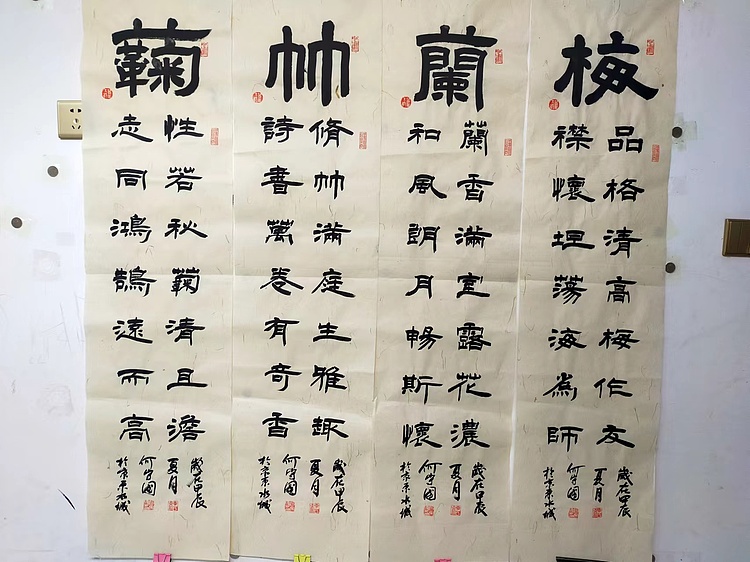 梅
品格清高梅作友
襟懷坦蕩海為師
歲在甲辰
夏月
何守國
於京東水城
蘭
蘭香滿室露花濃
和風朗月暢斯懷
歲在甲辰
夏月
何守國
於京東水城
竹
脩竹滿庭生雅趣
詩書萬卷有奇香
歲在甲辰
夏月
何守國
於京東水城
菊
性若秋菊清且澹
志同鴻鵠遠而高
歲在甲辰
夏月
何守國
於京東水城